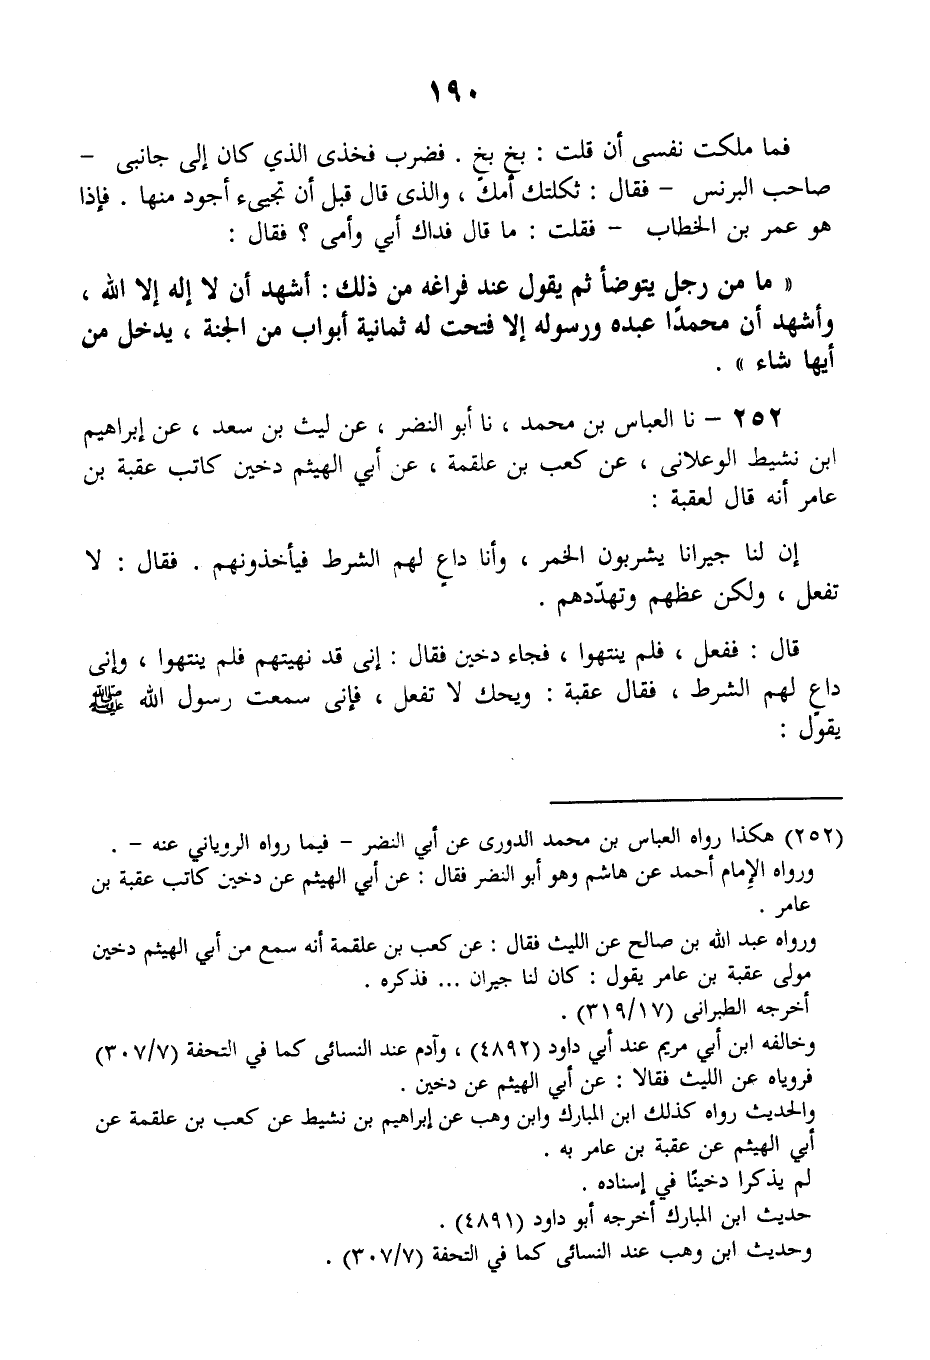 ١٩٠
فما ملكت نفسى أن قلت : بخ بخ . فضرب فخذى الذي كان إلى جانبى –
صاحب البرنس – فقال : ثكلتك أمك ، والذى قال قبل أن تجيىء أجود منها . فإذا
هو عمر بن الخطاب – فقلت : ما قال فداك أبي وأمى ؟ فقال :
« ما من رجل يتوضأ ثم يقول عند فراغه من ذلك : أشهد أن لا إله إلا الله ،
وأشهد أن محمدًا عبده ورسوله إلا فتحت له ثمانية أبواب من الجنة ، يدخل من
أيها شاء » .
٢٥٢ – نا العباس بن محمد ، نا أبو النضر ، عن ليث بن سعد ، عن إبراهيم
ابن نشيط الوعلانى ، عن كعب بن علقمة ، عن أبي الهيثم دخين كاتب عقبة بن
عامر أنه قال لعقبة :
إن لنا جيرانا يشربون الخمر ، وأنا داعٍ لهم الشرط فيأخذونهم . فقال : لا
تفعل ، ولكن عظهم وتهدّدهم .
قال : ففعل ، فلم ينتهوا ، فجاء دخين فقال : إنى قد نهيتهم فلم ينتهوا ، وإنى
داعٍ لهم الشرط ، فقال عقبة : ويحك لا تفعل ، فإنى سمعت رسول الله ﷺ
يقول :
(٢٥٢) هكذا رواه العباس بن محمد الدورى عن أبي النضر – فيما رواه الروياني عنه – .
ورواه الإمام أحمد عن هاشم وهو أبو النضر فقال : عن أبي الهيثم عن دخين كاتب عقبة بن
عامر .
ورواه عبد الله بن صالح عن الليث فقال : عن كعب بن علقمة أنه سمع من أبي الهيثم دخين
مولى عقبة بن عامر يقول : كان لنا جيران ... فذكره .
أخرجه الطبرانى (٣١٩/١٧) .
وخالفه ابن أبي مريم عند أبي داود (٤٨٩٢) ، وآدم عند النسائى كما في التحفة (٣٠٧/٧)
فروياه عن الليث فقالا : عن أبي الهيثم عن دخين .
والحديث رواه كذلك ابن المبارك وابن وهب عن إبراهيم بن نشيط عن كعب بن علقمة عن
أبي الهيثم عن عقبة بن عامر به .
لم يذكرا دخينًا في إسناده .
حديث ابن المبارك أخرجه أبو داود (٤٨٩١) .
وحديث ابن وهب عند النسائى كما في التحفة (٣٠٧/٧) .